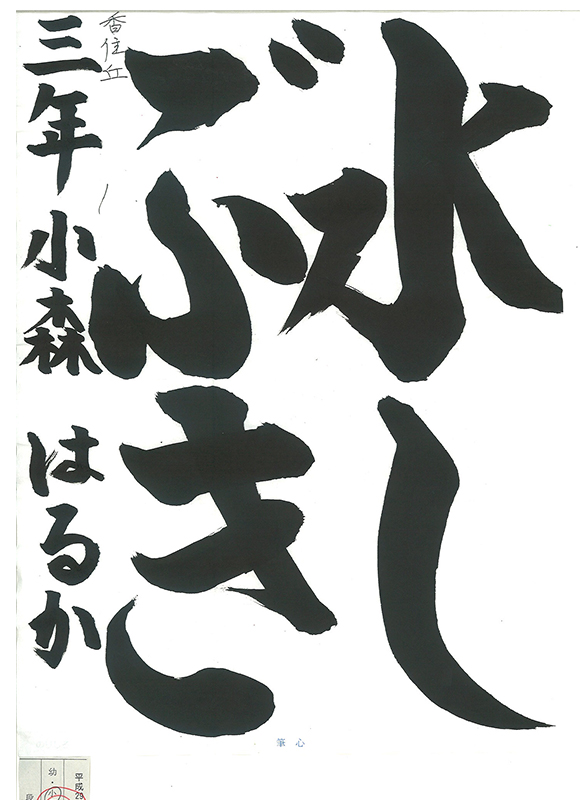 水し
ぶき
香住丘
三年 小森 はるか
筆心
平成29
幼・小
段